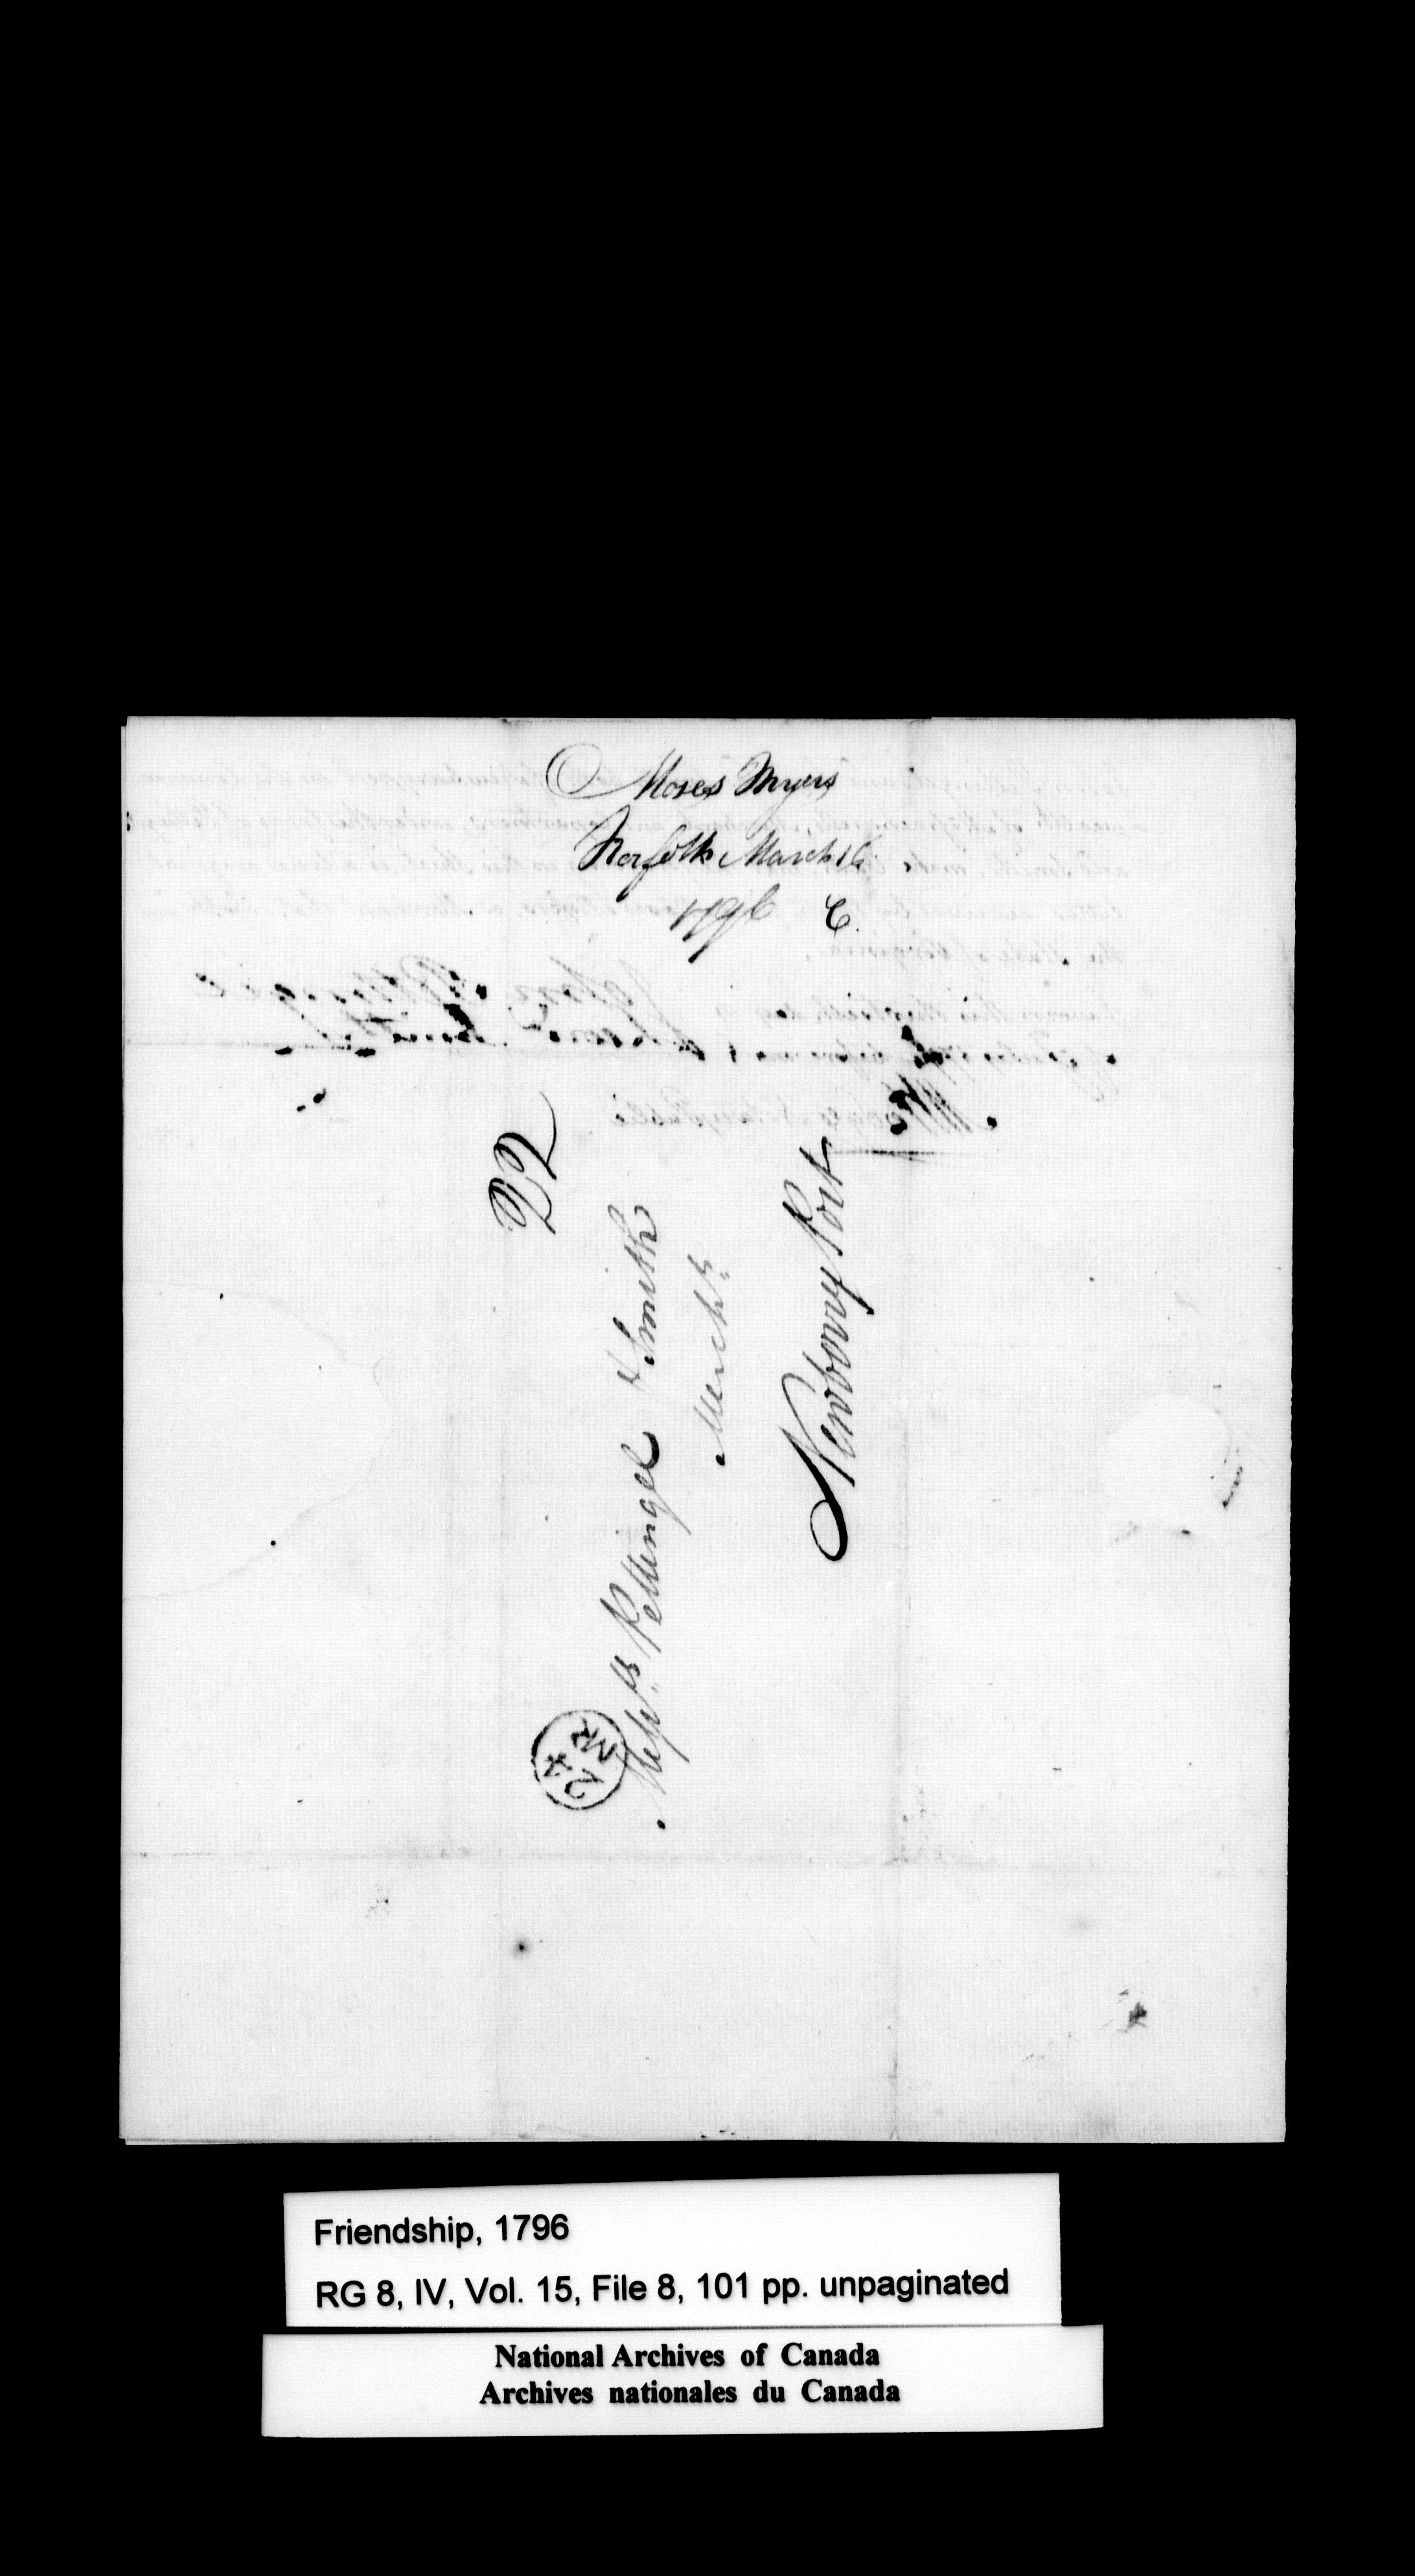 Moses Myers
Norfolk March 16
1796 C.
22
Mess.rs Pettingel & Smith
Merch.ts
Newberry Port
24
MR
Friendship, 1796
RG 8, IV, Vol. 15, File 8, 101 pp. unpaginated
National Archives of Canada
Archives nationales du Canada